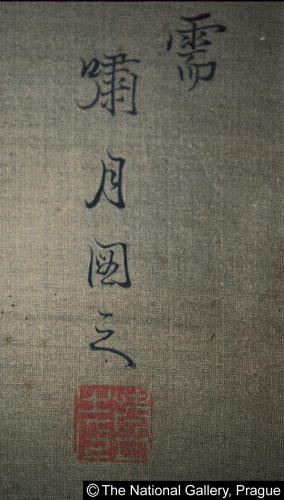 需
嘯月圖之
© The National Gallery, Prague